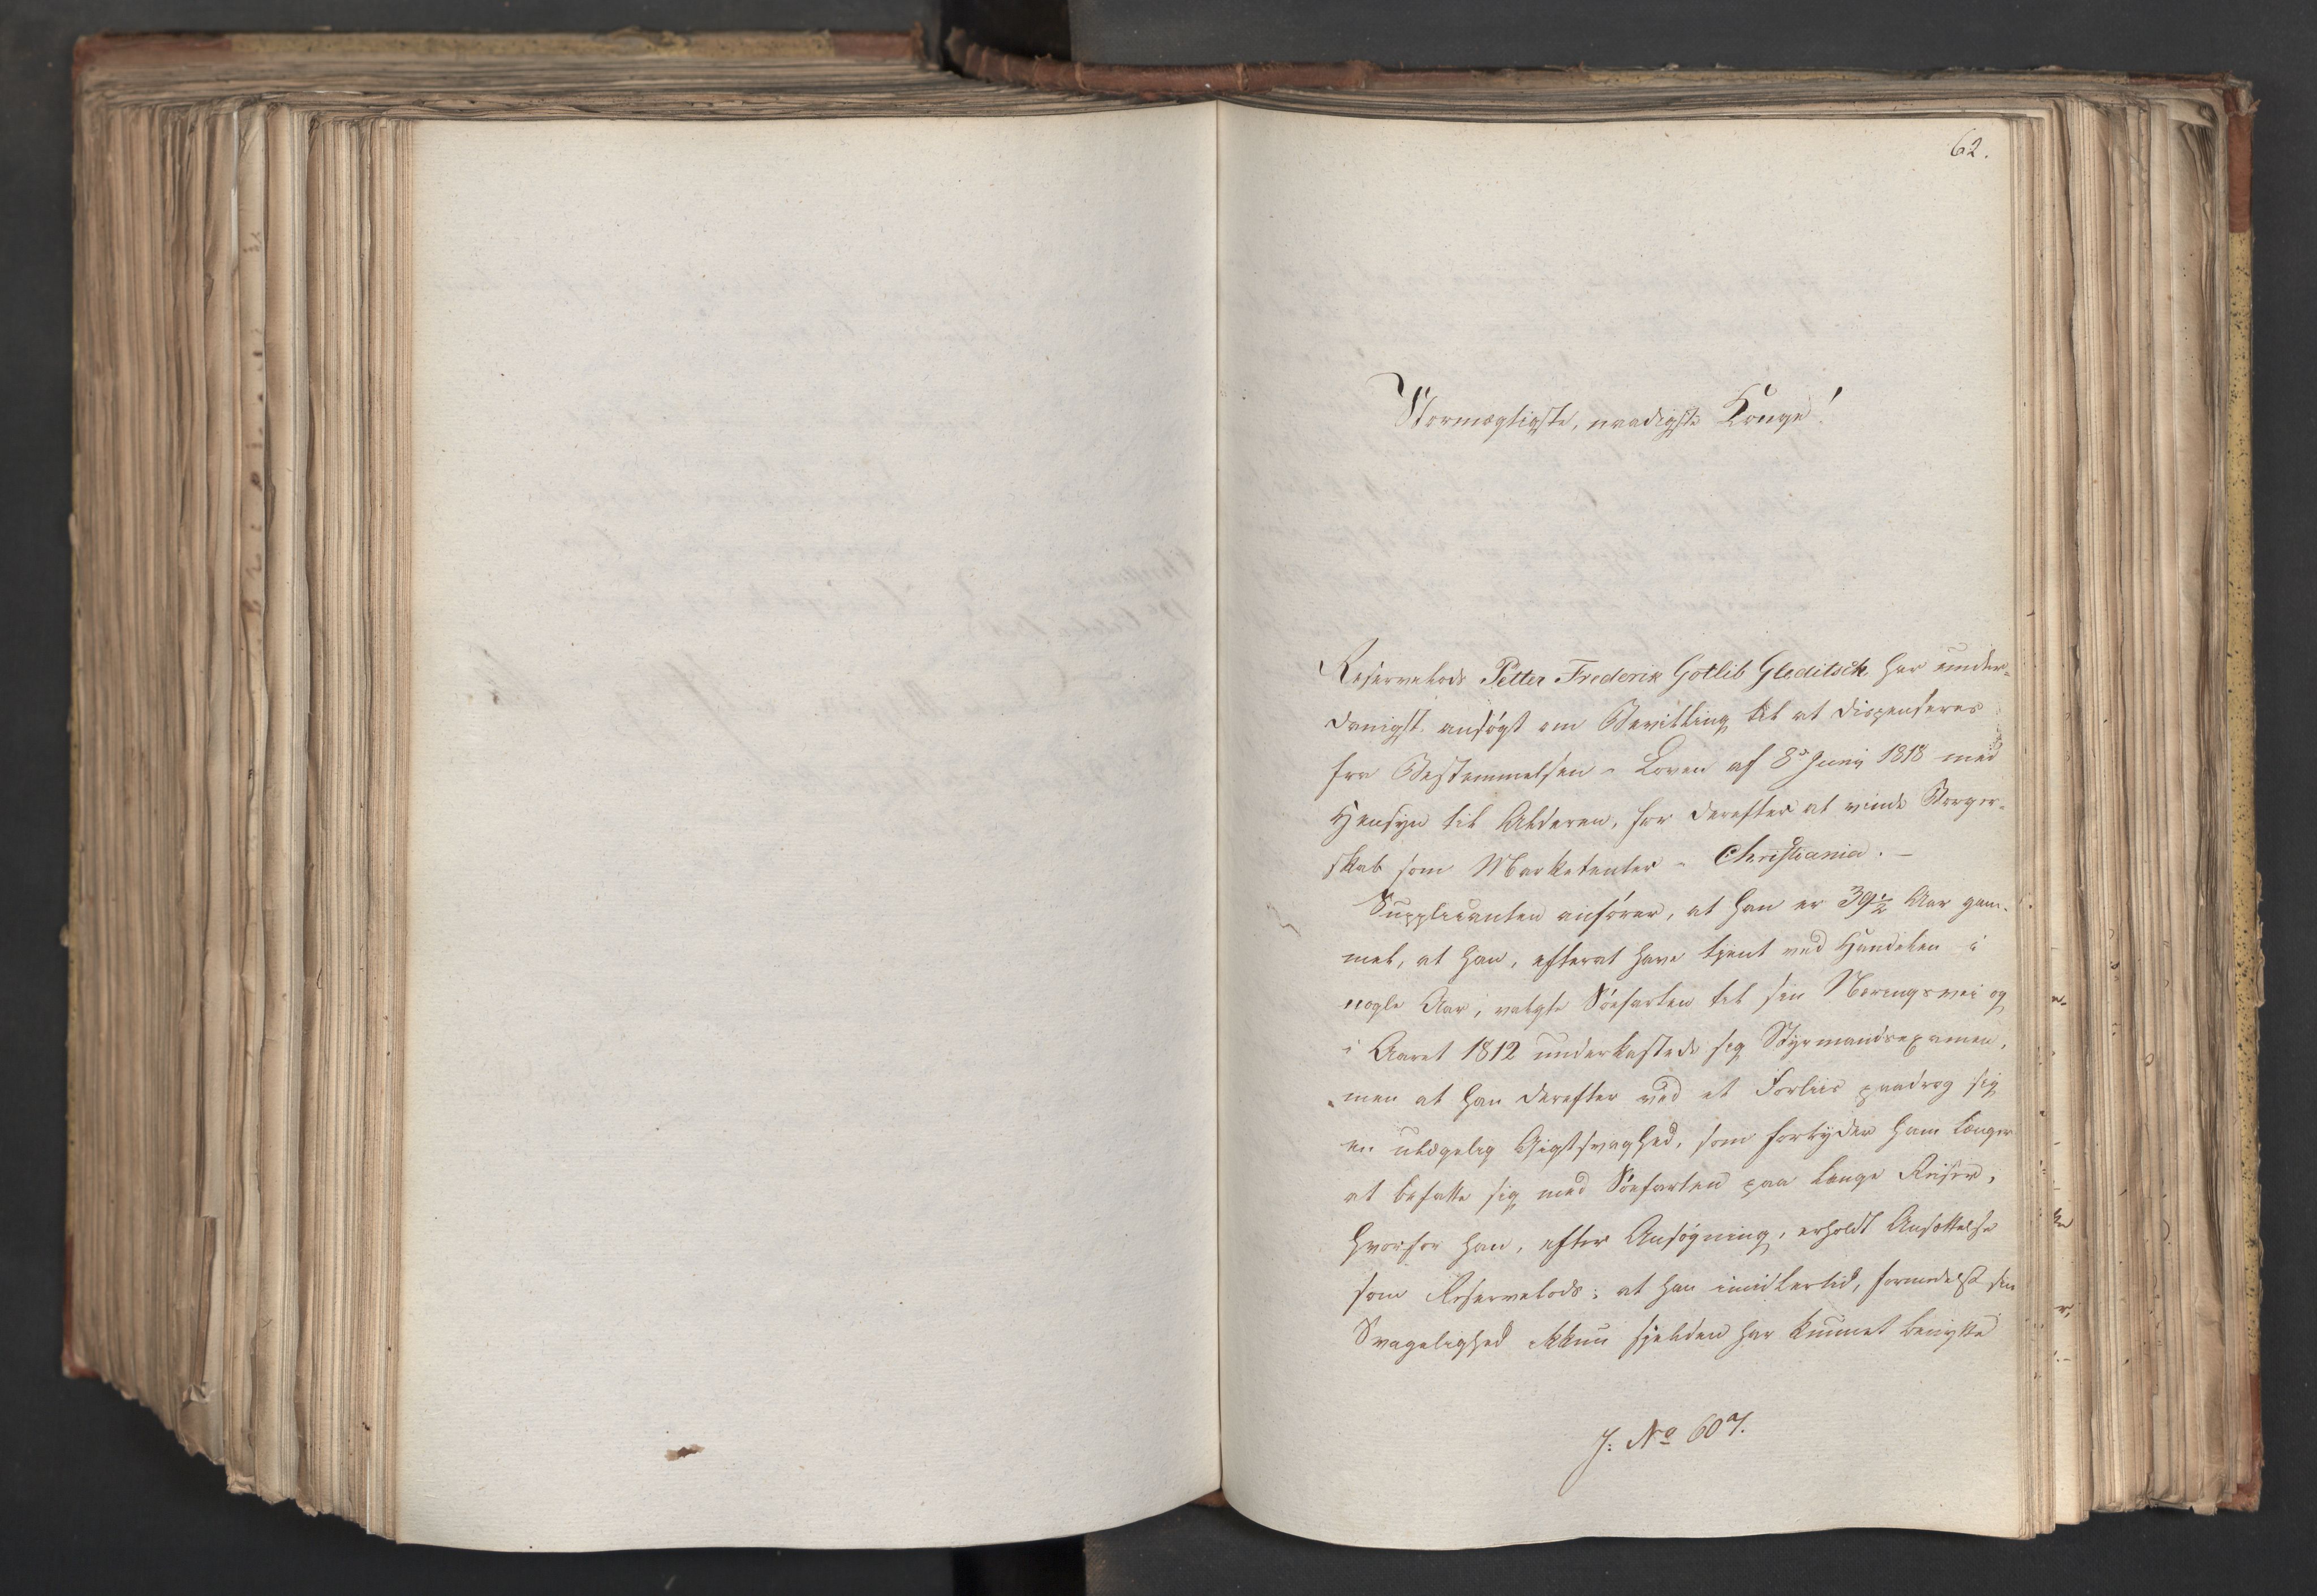 62.
Stormægtigste, naadigste Konge!
Reservelods Petter Frederik Gotlib Gleditsch har under-
danigst ansøgt om Bevilling til at dispenseres
fra Bestemmelsen i Loven af 8de Juny 1818 med
Hensyn til Alderen, for derefter at vinde Borger-
skab som Marketenter i Christiania. -
Supplicanten anfører, at han er 39½ Aar gam-
mel, at han, efterat have tjent ved Handelen i
nogle Aar, valgte Søefarten til sin Næringsvei og
i Aaret 1812 underkastede sig Styrmandsexamen,
men at han derefter ved et Forliis paadrog sig
en ulægelig Gigtsvaghed, som forbyder ham længer
at befatte sig med Søefarten paa lange Reiser,
hvorfor han, efter Ansøgning, erholdt Ansættelse
som Reservelods; at han imidlertid, formedelst sin
Svagelighed kkun sjelden har kunnet benytte
J: No 607.